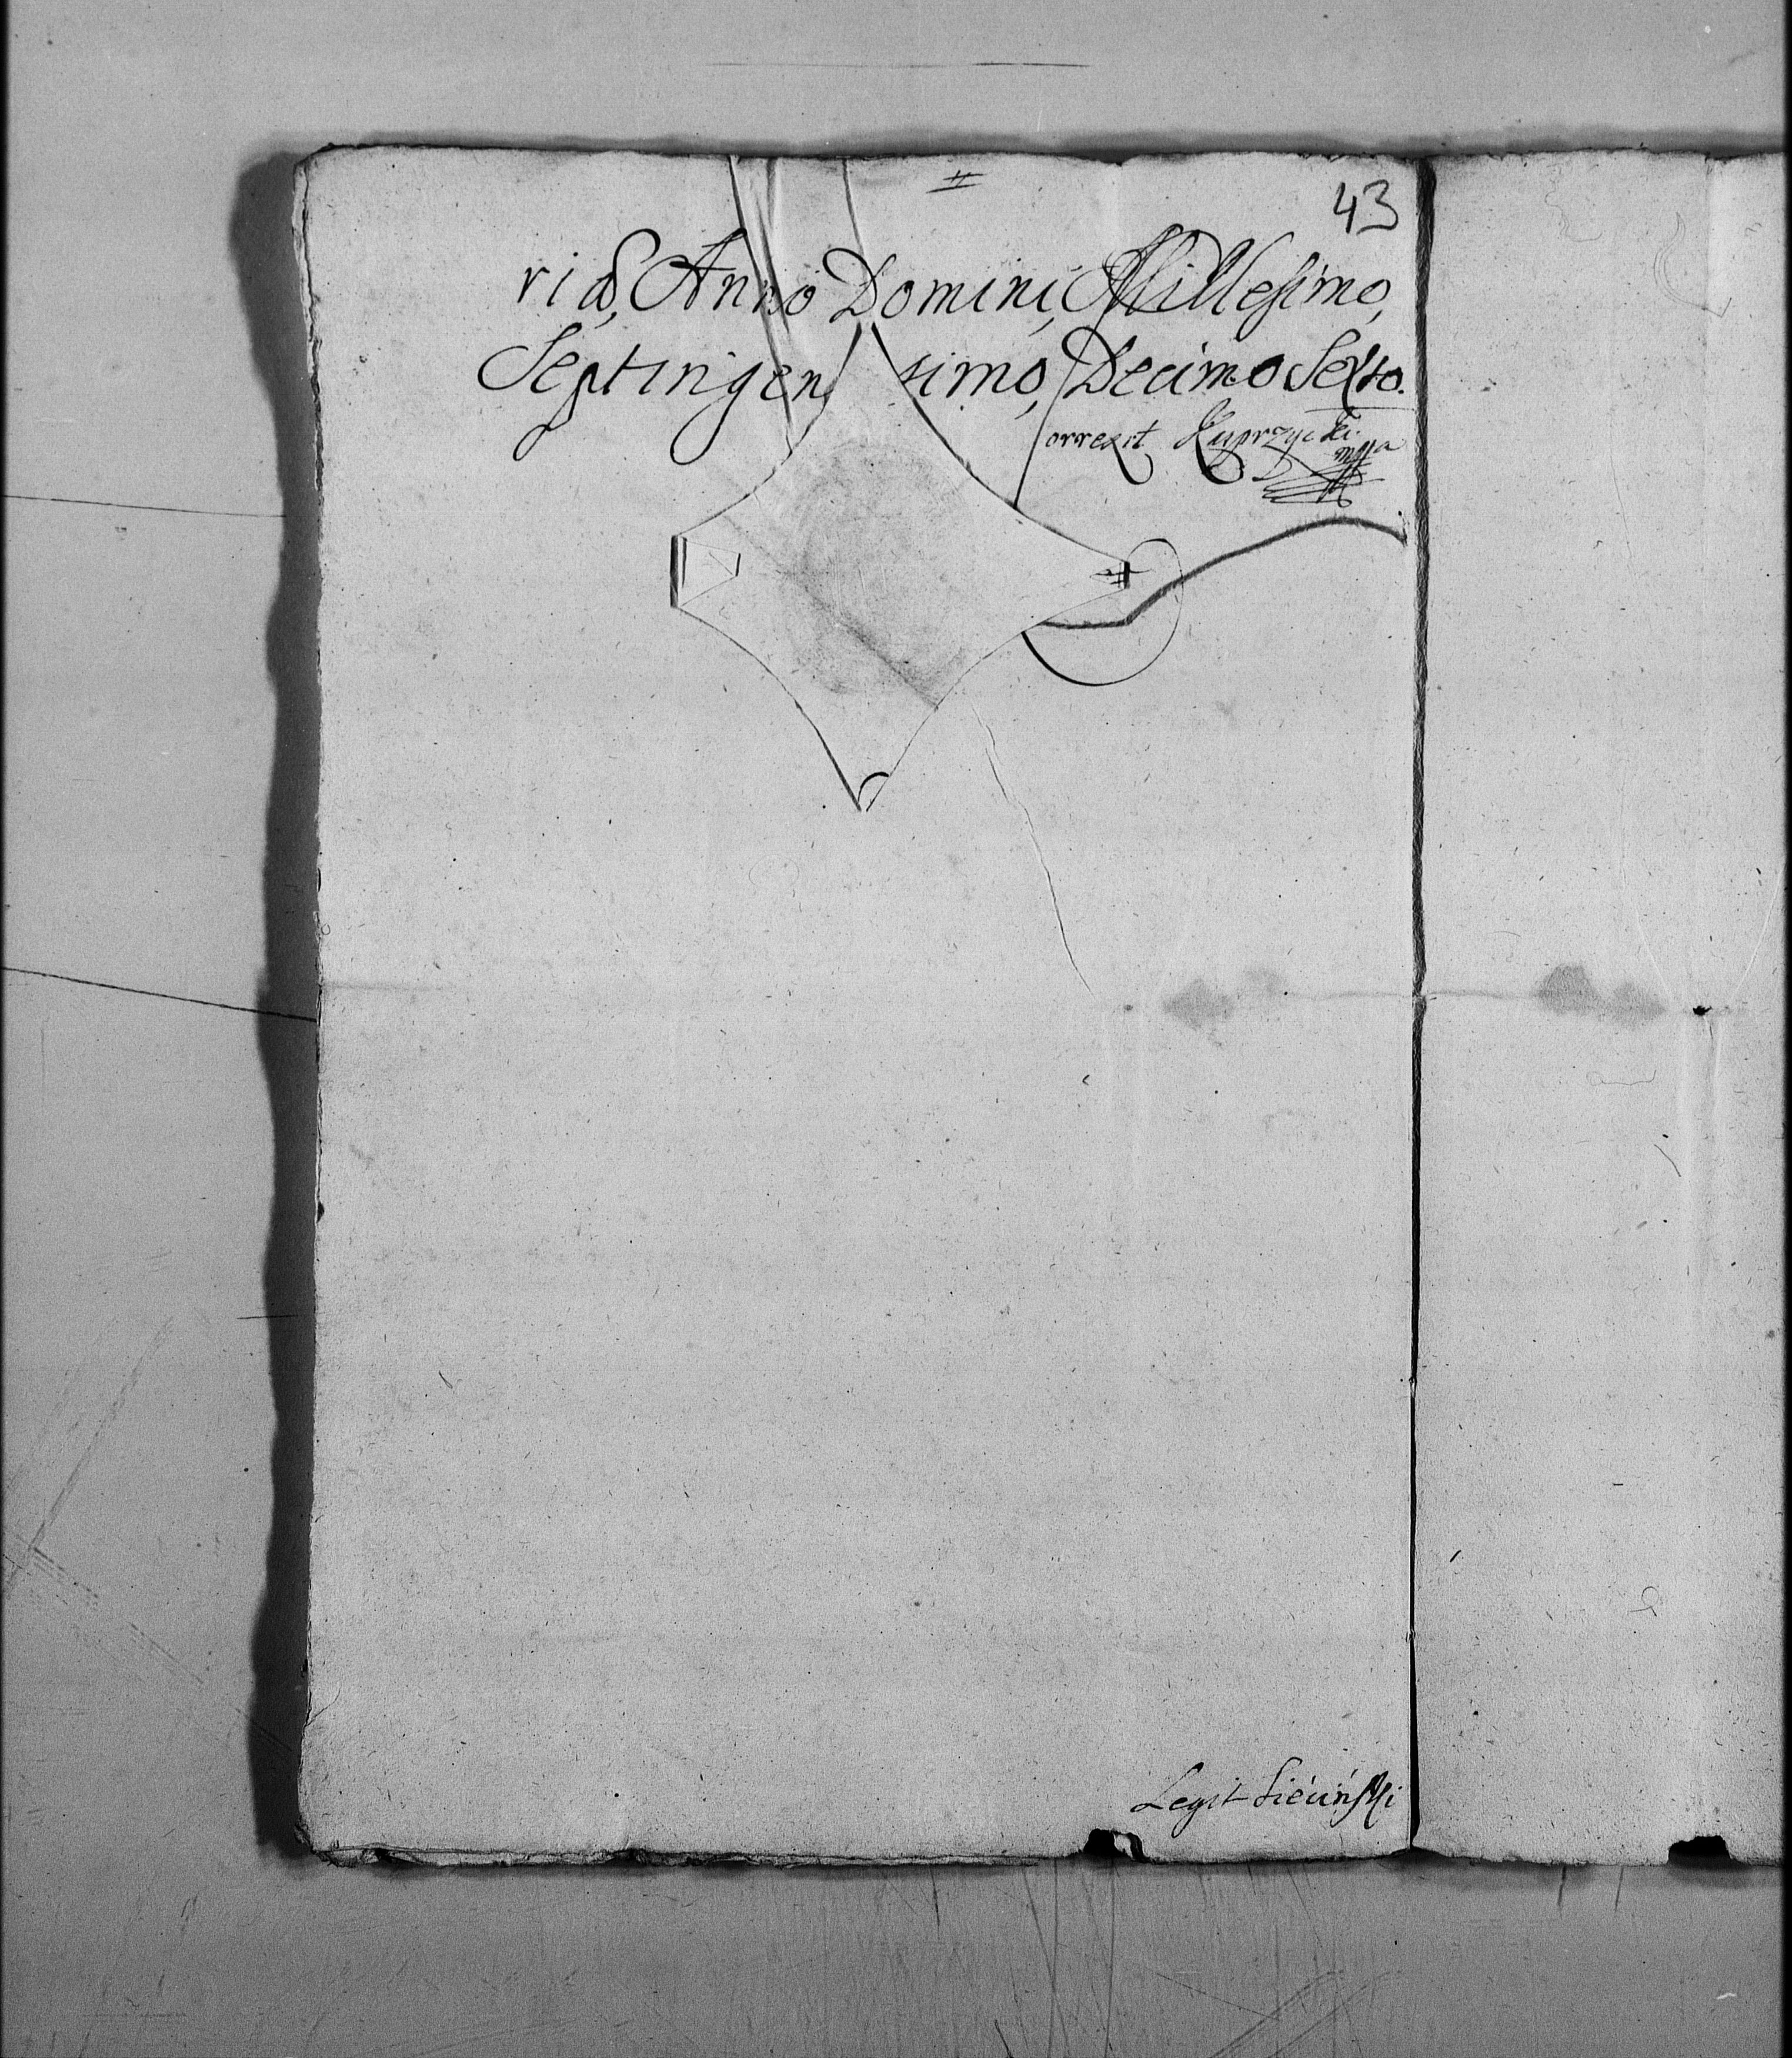 43
ria, Anno Domini, Millesimo,
Septingen simo, Decimo Sexto.
orrexit Kuprzycki
mppa
Legit Siecinski